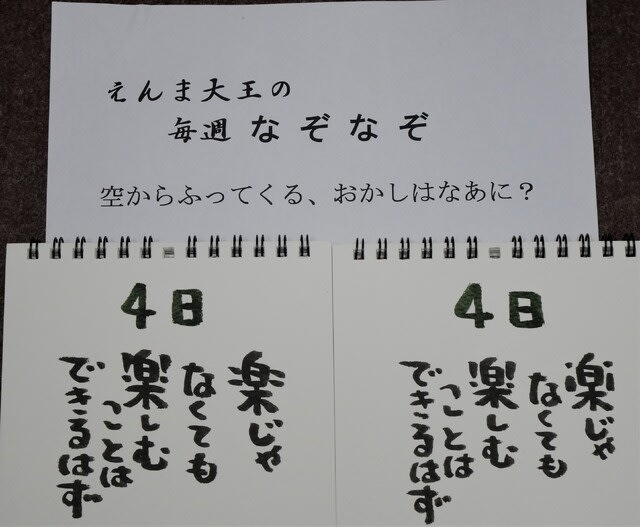 えんま大王の
毎週なぞなぞ
空からふってくる、おかしはなあに？
4日
楽じゃ
なくても
楽しむ
ことは
できるはず
4日
楽じゃ
なくても
楽しむ
ことは
できるはず